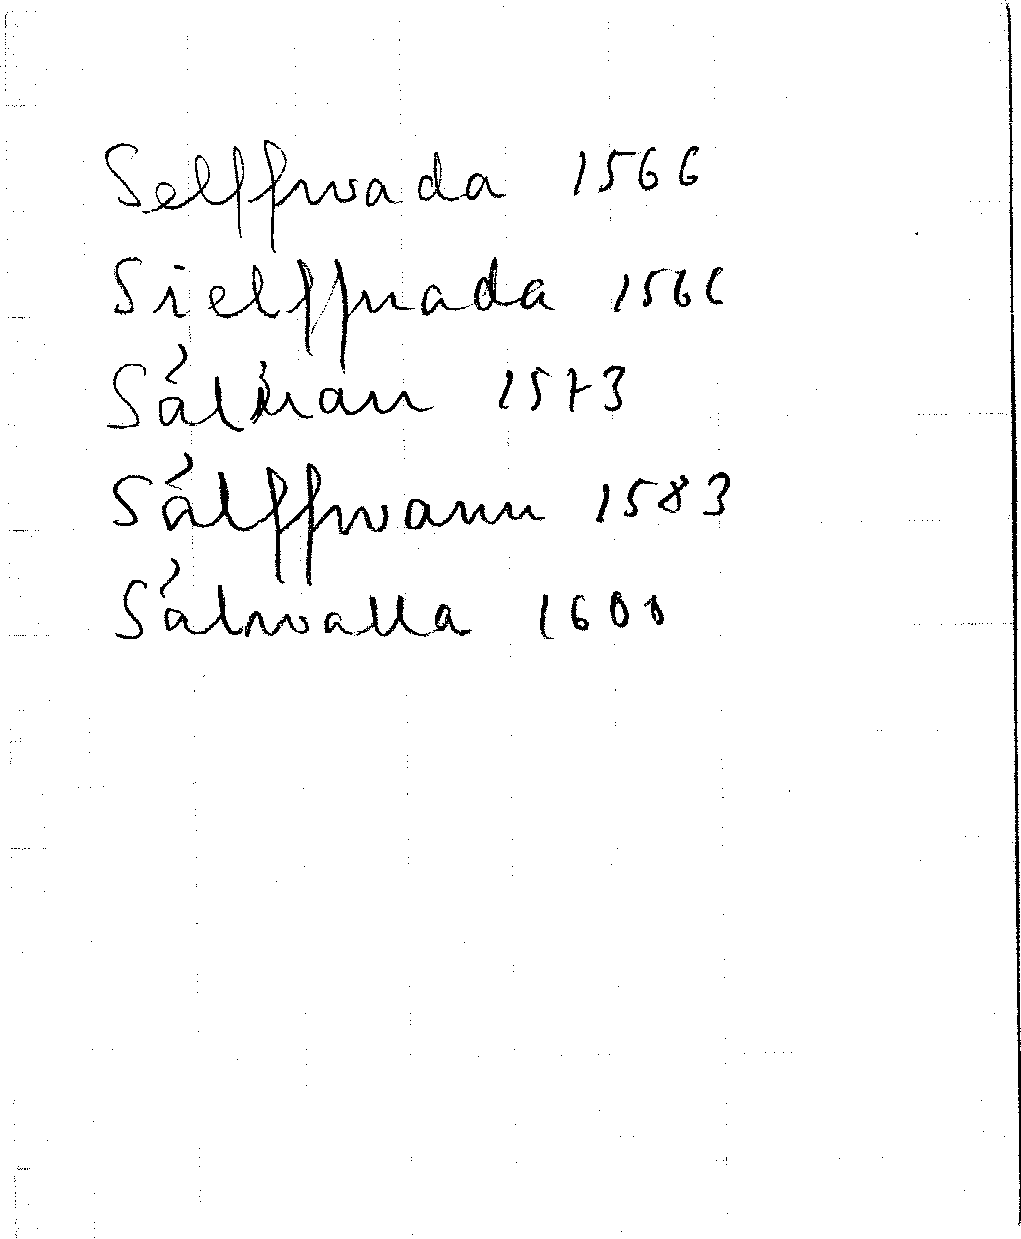 Selffwada 1566
Sielffuada 1566
1573
Sálffwanu 1583
Sálwalla 1600